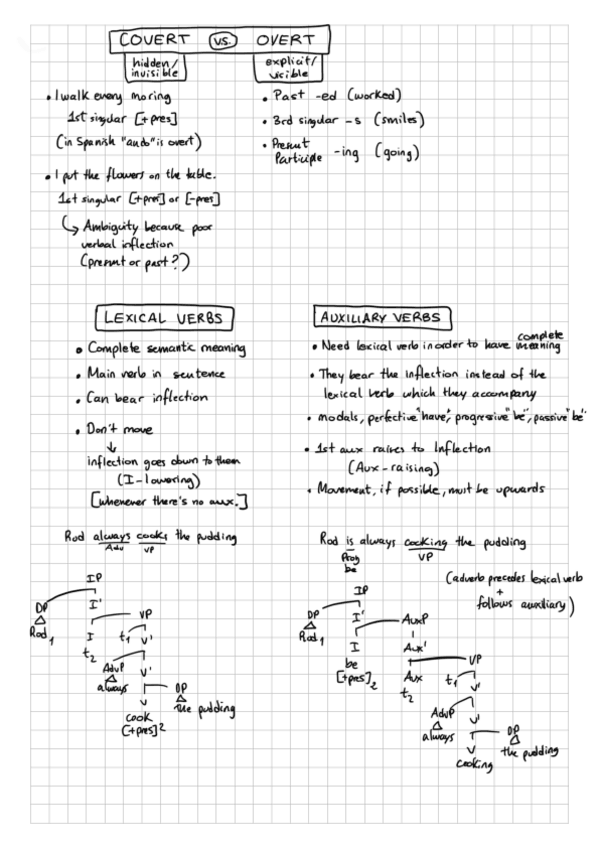 COVERT vs. OVERT
hidden/
invisible
explicit/
visible
• I walk every moring
1st singular [+pres]
(in Spanish "ando" is overt)
• I put the flowers on the table.
1st singular [+pres] or [-pres]
↳ Ambiguity because poor
verbal inflection
(present or past?)
• Past -ed (worked)
• 3rd singular -s (smiles)
• Present
Participle -ing (going)
LEXICAL VERBS
• Complete semantic meaning
• Main verb in sentence
• Can bear inflection
• Don't move
↓
inflection goes down to them
(I-lowering)
[whenever there's no aux.]
Rod always cooks the pudding
Adv VP
IP
DP I'
Rod1 I VP
t2 t1 V'
AdvP V'
always V DP
cook the pudding
[+pres]2
AUXILIARY VERBS
• Need lexical verb in order to have complete meaning
• They bear the inflection instead of the
lexical verb which they accompany
• modals, perfective "have", progressive "be", passive "be"
• 1st aux raises to Inflection
(Aux-raising)
• Movement, if possible, must be upwards
Rod is always cooking the pudding
Prog VP
be
(adverb precedes lexical verb
+
follows auxiliary)
IP
DP I'
Rod1 I AuxP
be Aux'
[+pres]2 Aux VP
t2 t1 V'
AdvP V'
always V DP
cooking the pudding